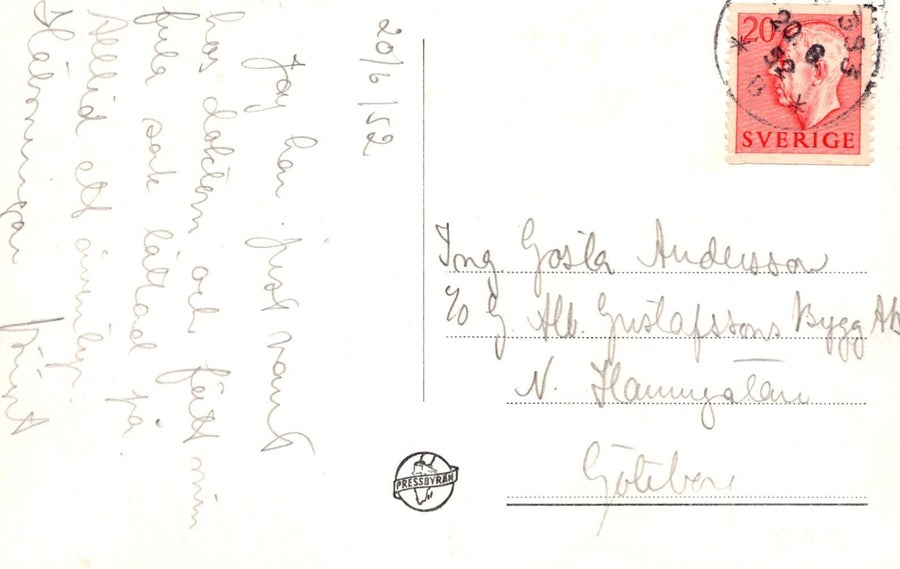 20/6/52
Jag har just varit
hos doktorn och fått min
fula sak lättad på
Alltid ett
Hälsningar
20
SVERIGE
393
20. 6
52
Ing. Gösta Andersson
c/o G. Alb. Gustafssons Bygg AB
N. Hamngatan
Göteborg
PRESSBYRÅN